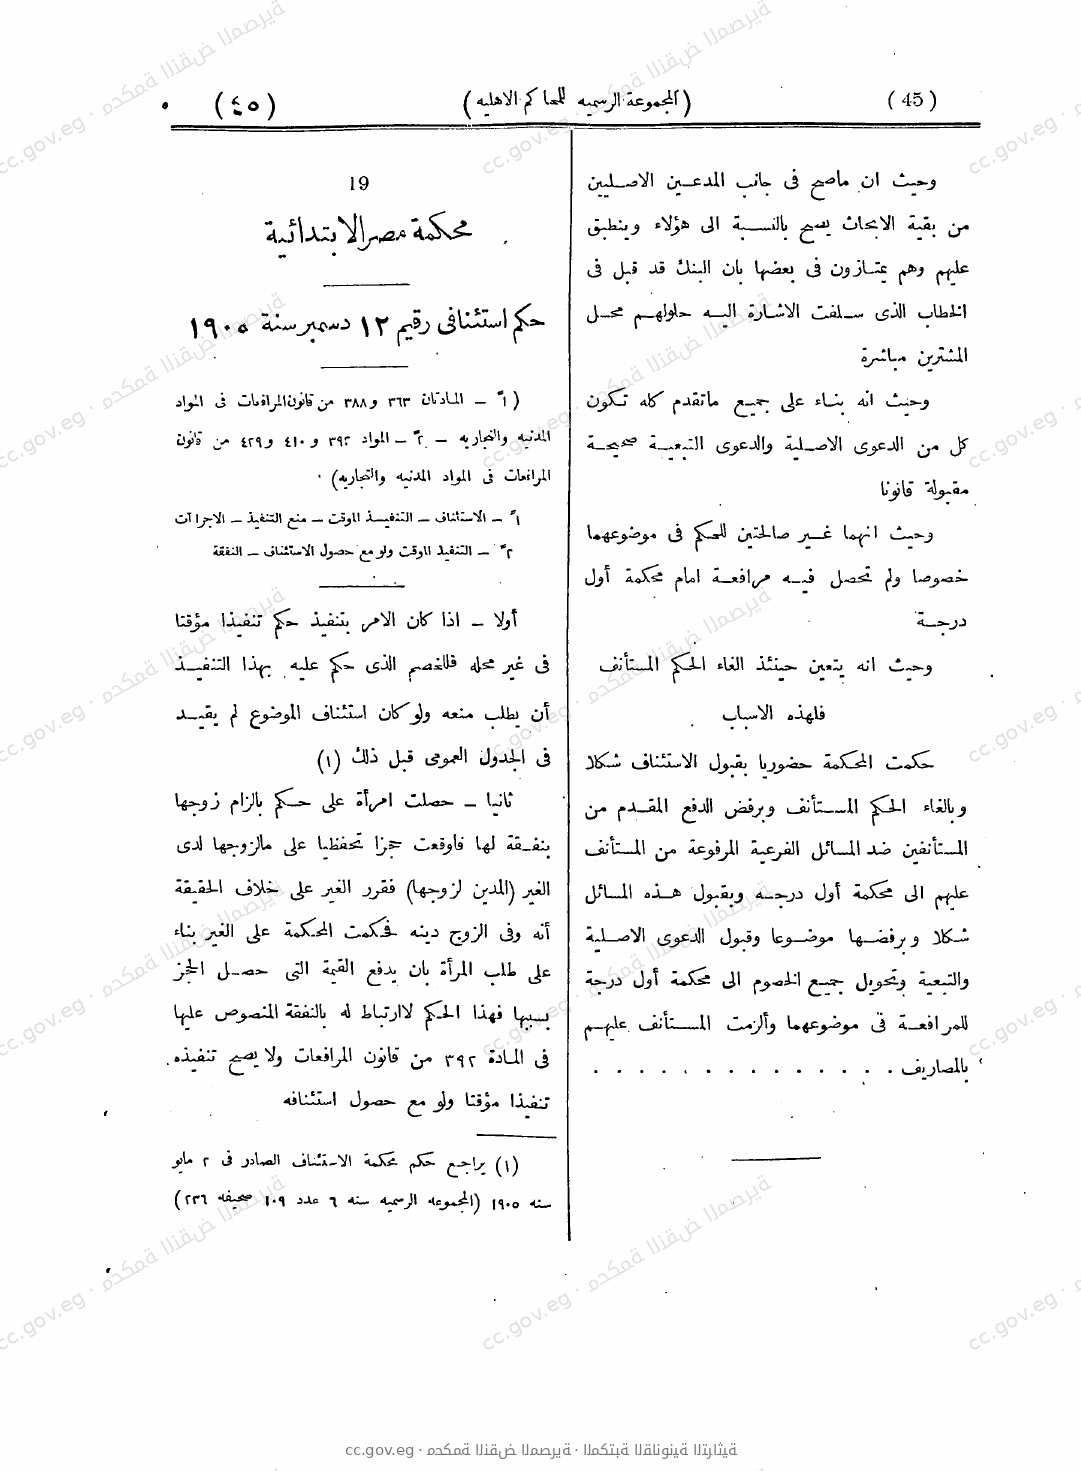 (45) (المجموعة الرسميه للمحاكم الاهليه) (٤٥)
وحيث ان ماصح فى جانب المدعـين الاصـليين
من بقية الابحاث يصح بالنسـبة الى هؤلاء وينطبق
عليهم وهم يمتـازون فى بعضها بان البنك قد قبل فى
الخطاب الذى سـلفت الاشـارة اليـه حلولهـم محـل
المشترين مباشرة
وحيث انه بنـاء على جميع ماتقدم كله تـكون
كل من الدعوى الاصـلية والدعوى التبعيـة صحيحـة
مقبولة قانونا
وحيث انهما غـير صالحتين للحكم فى موضوعهما
خصوصا ولم تحصل فيـه مرافعـة امام محكمة أول
درجـة
وحيث انه يتعين حينئذ الغاء الحكم المستأنف
فلهذه الاسباب
حكمت المحكمة حضوريا بقبول الاستئناف شكلا
وبالغاء الحكم المسـتأنف وبرفض الدفع المقـدم من
المستأنفين ضد المسائل الفرعية المرفوعة من المستأنف
عليهم الى محكمة أول درجـه وبقبول هـذه المسائل
شـكلا وبرفضـها موضـوعا وقبول الدعوى الاصـلية
والتبعية وتحويل جميع الخصوم الى محكمة أول درجة
للمرافعـة فى موضوعهما وألزمت المسـتأنف عليهـم
بالمصاريف . . . . . . . . . . . . . .
19
محكمة مصر الابتدائية
حكم استئنافى رقيم ١٢ دسمبر سنة ١٩٠٥
(١ً – المادتان ٣٦٣ و٣٨٨ من قانون المرافعات فى المواد
المدنيه والتجاريه – ٢ً – المواد ٣٩٢ و٤١٠ و٤٢٩ من قانون
المرافعات فى المواد المدنيه والتجاريه) ٠
١ً – الاستئناف – التنفيـذ الموقت – منع التنفيذ – الاجراآت
٢ً – التنفيذ الموقت ولو مع حصول الاستئناف – النفقة
أولا – اذا كان الامر بتنفيذ حكم تنفيذا مؤقتا
فى غير محله فللخصم الذى حكم عليه بهذا التنفيـذ
أن يطلب منعه ولو كان استئناف الموضوع لم يقيـد
فى الجدول العمومى قبل ذلك (١)
ثانيا – حصلت امرأة على حـكم بالزام زوجها
بنفـقة لها فاوقعت حجزا تحفظيا على مالزوجها لدى
الغير (المدين لزوجها) فقرر الغير على خلاف الحقيقة
أنه وفى الزوج دينه فحكمت المحكمة على الغير بناء
على طلب المرأة بان يدفع القيمة التى حصـل الحجز
بسببها فهذا الحكم لاارتباط له بالنفقة المنصوص عليها
فى المادة ٣٩٢ من قانون المرافعات ولا يصح تنفيذه
تنفيذا مؤقتا ولو مع حصول استئنافه
(١) يراجـع حكم محكمة الاستئناف الصادر فى ٢ مايو
سنه ١٩٠٥ (المجموعه الرسميه سنه ٦ عدد ١٠٩ صحيفه ٢٣٦)
cc.gov.eg · محكمة النقض المصرية · المكتبة القانونية التراثية